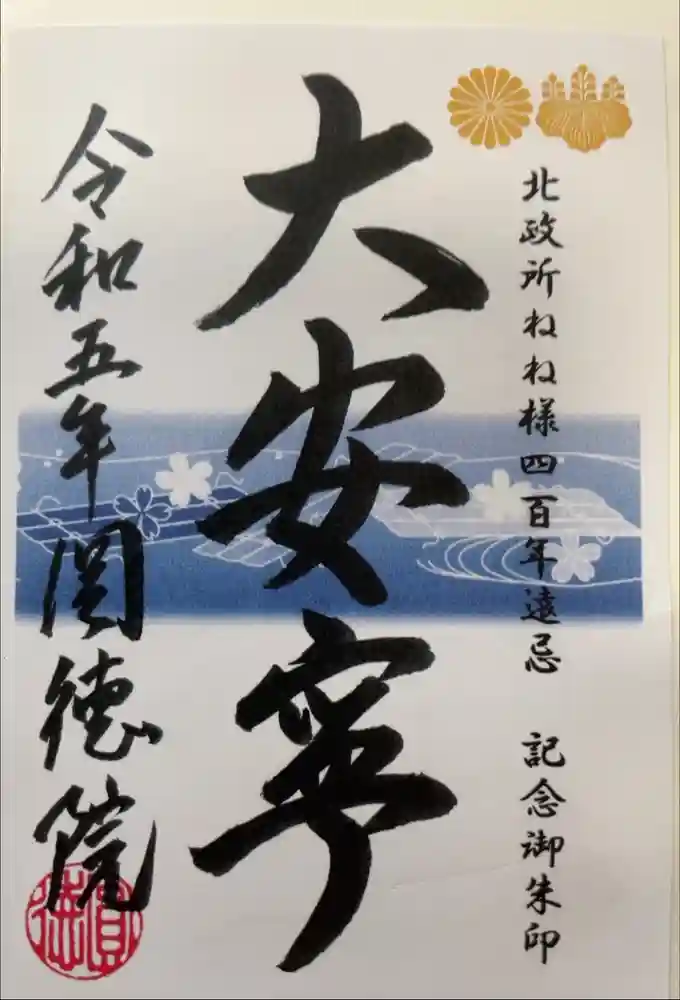 北政所ねね様四百年遠忌 記念御朱印
大安寧
令和五年 圓徳院
圓徳